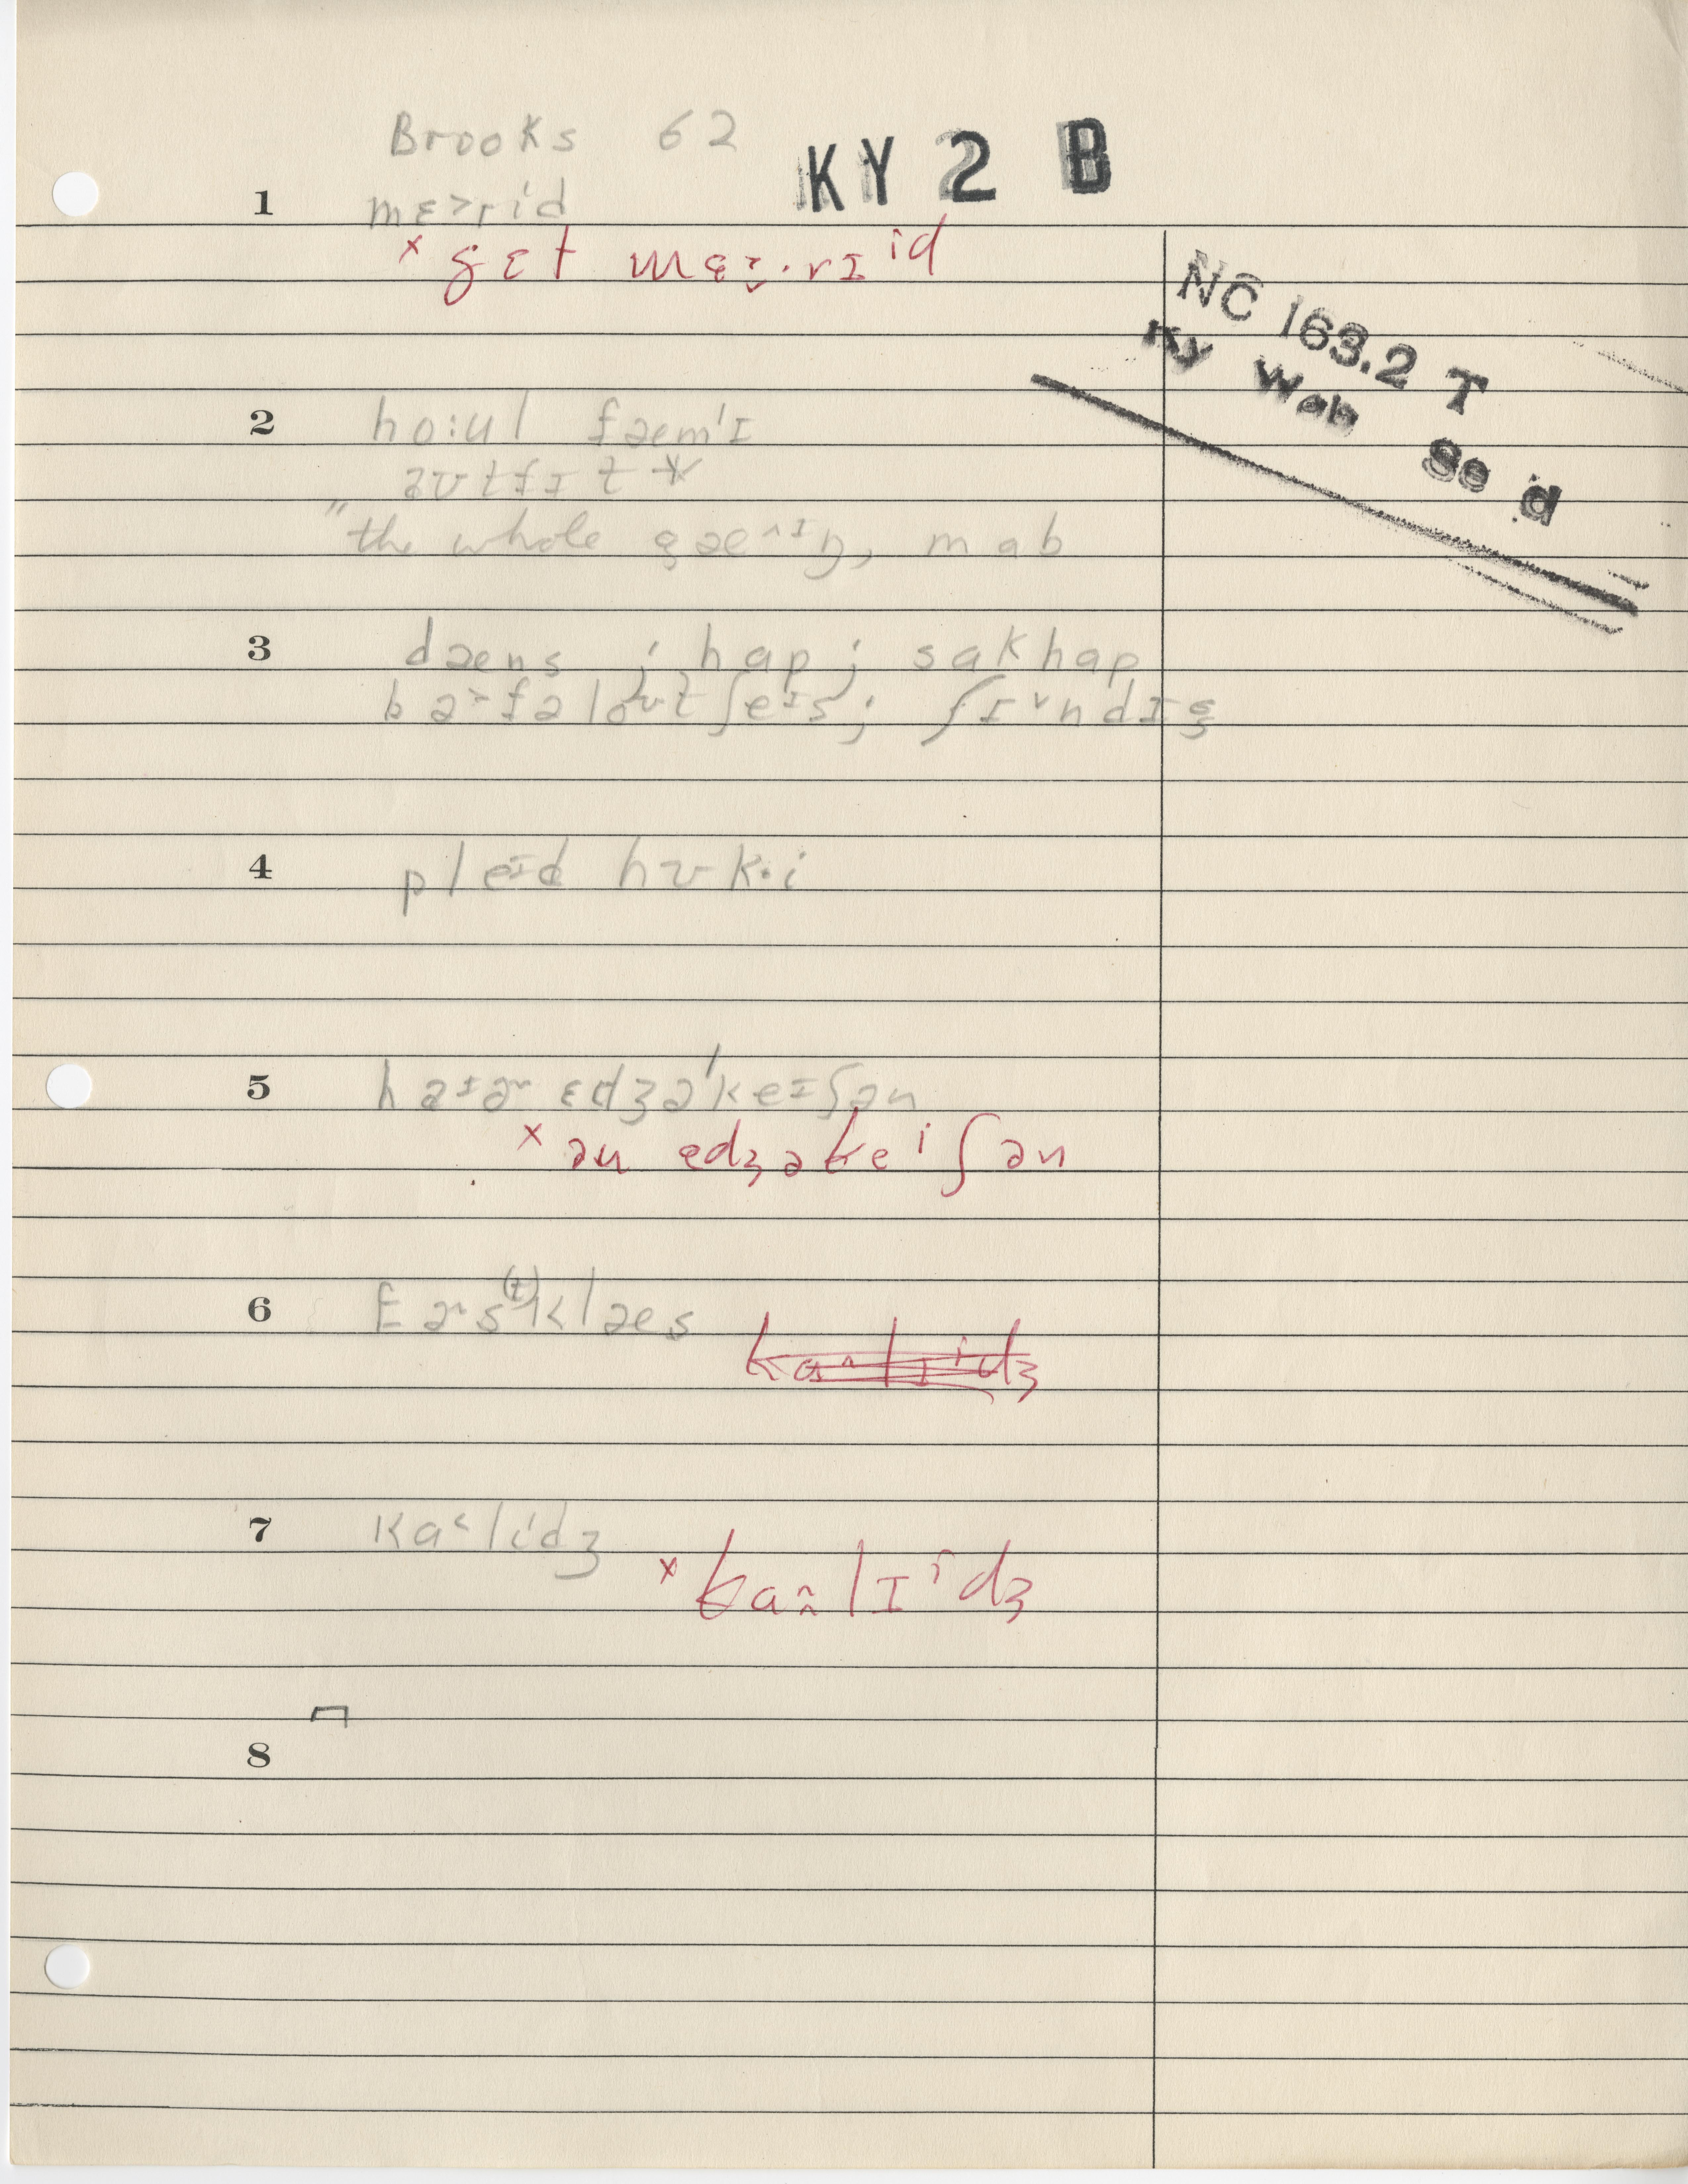 Brooks 62
KY 2 B
1 mɛ˃rid
ˣ gɛt mɛ˔·rɪⁱd
NC 163.2 T
Ky Wab Se d
2 ho:ul fæm'ɪ
aʊtfɪt *
"the whole gæ^ɪŋ, mab
3 dæns ; hap ; sakhap
ba˃fəloʊtʃeɪs; ʃɪˇndɪg
4 pleɪd hʊk·i
5 haɪɚ ɛdʒə'keɪʃən
ˣ ən edʒəkeⁱʃən
6 fɚs⁽ᵗ⁾klæs
ka^lɪⁱdʒ
7 ka˂lidʒ
ˣ ka^^lɪⁱdʒ
8